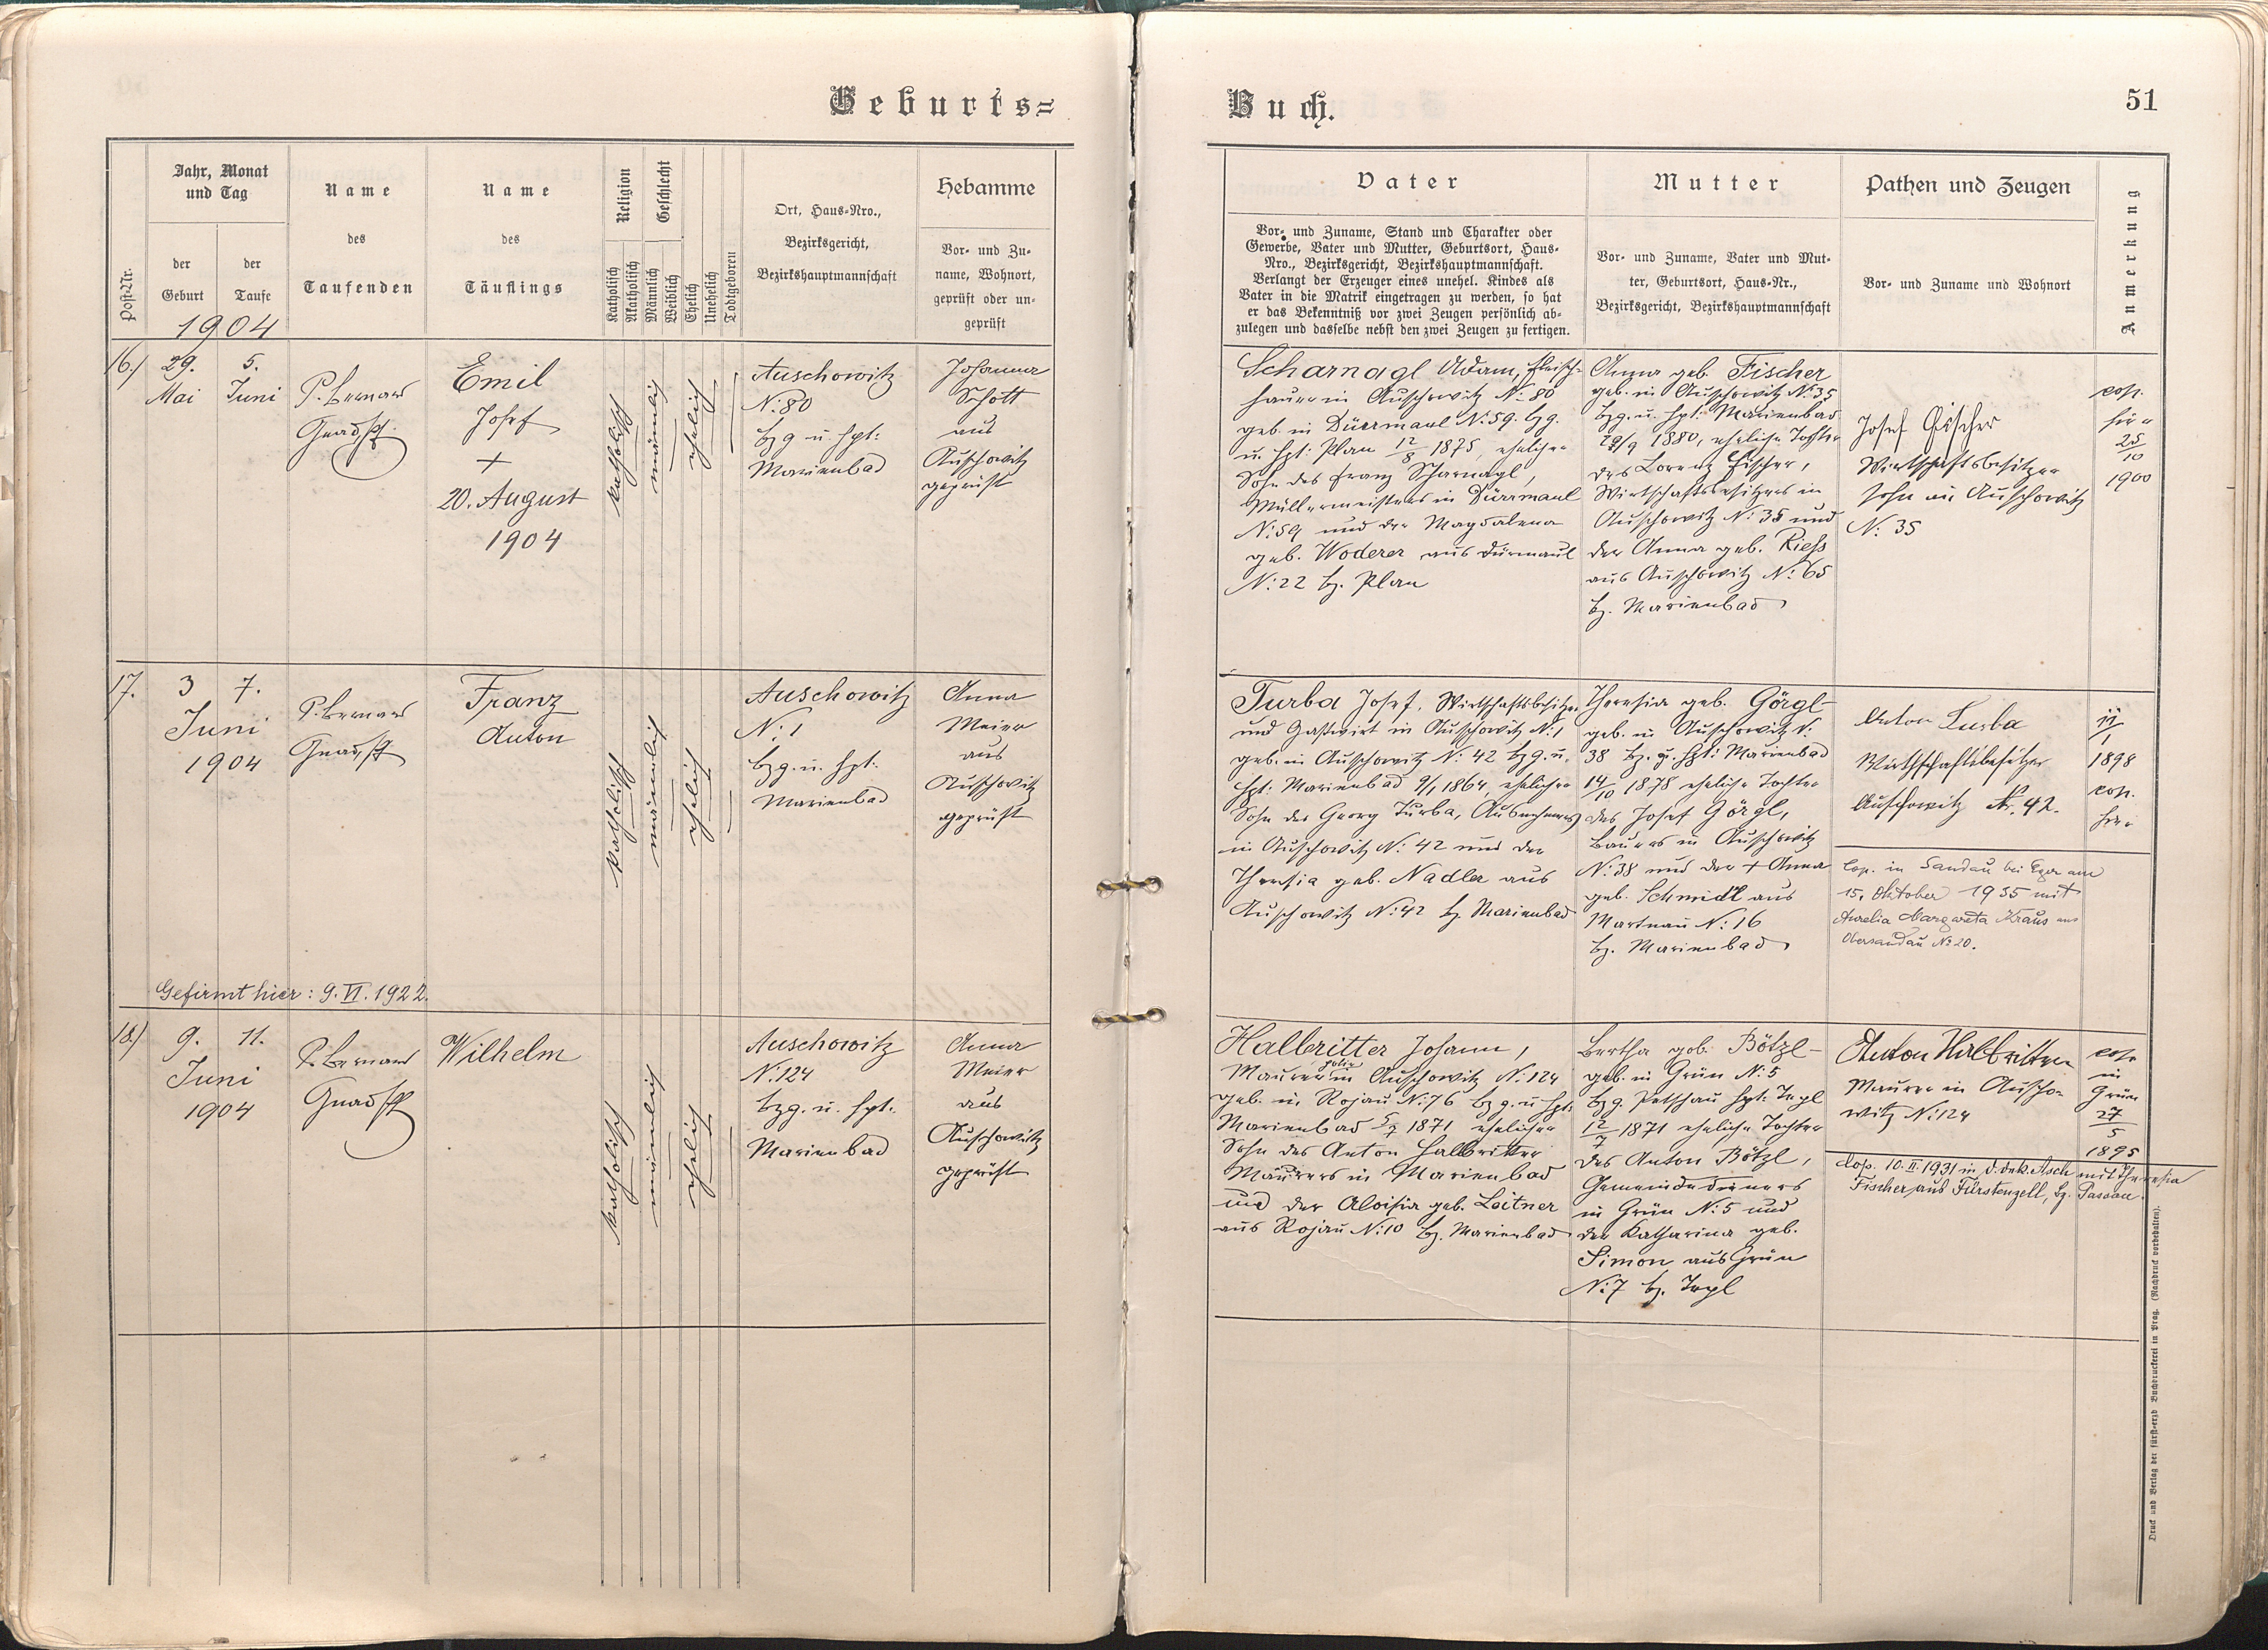 Geburts=
Jahr, Monat
und Tag
der
Geburt
der
Taufe
1904
Post-Nr.
Name
des
Taufenden
Name
des
Täuflings
Religion
Katholisch
Akatholisch
Geschlecht
Männlich
Weiblich
Ehelich
Unehelich
Todtgeboren
Ort, Haus-Nro.,
Bezirksgericht,
Bezirkshauptmannschaft
Hebamme
Vor- und Zu-
name, Wohnort,
geprüft oder un-
geprüft
16.)
29.
Mai
5.
Juni
P. Bernard
Emil
Josef
+
20. August
1904
katholisch
männlich
ehelich
Auschowitz
N: 80
bzg u. hpt:
Marienbad
Johanna
Schott
aus
Auschowitz
geprüft
17.
3
Juni
1904
7.
P. Bernard
Franz
Anton
katholisch
männlich
ehelich
Auschowitz
N: 1
bzg. u. hpt.
Marienbad
Anna
Meier
aus
Auschowitz
geprüft
Gefirmt hier: 9. VI. 1922.
18.)
9.
Juni
1904
11.
P. Bernard
Wilhelm
katholisch
männlich
ehelich
Auschowitz
N: 124
bzg. u. hpt.
Marienbad
Anna
Meier
aus
Auschowitz
geprüft
Buch.
51
Vater
Vor- und Zuname, Stand und Charakter oder
Gewerbe, Vater und Mutter, Geburtsort, Haus-
Nro., Bezirksgericht, Bezirkshauptmannschaft.
Verlangt der Erzeuger eines unehel. Kindes als
Vater in die Matrik eingetragen zu werden, so hat
er das Bekenntniß vor zwei Zeugen persönlich ab-
zulegen und dasselbe nebst den zwei Zeugen zu fertigen.
Mutter
Vor- und Zuname, Vater und Mut-
ter, Geburtsort, Haus-Nr.,
Bezirksgericht, Bezirkshauptmannschaft
Pathen und Zeugen
Vor- und Zuname und Wohnort
Anmerkung
Scharnagl Adam, Fleisch-
hauer in Auschowitz N: 80
geb. in Dürrmaul N: 59. bzg.
u. hpt: Plan 12/8 1875, ehelicher
Sohn des Franz Scharnagl,
Müllermeisters in Dürrmaul
N: 59 und der Magdalena
geb. Woderer aus Dürmaul
N: 22 bz. Plan
Anna geb. Fischer
geb. in Auschowitz N: 35
bzg. u. hpt: Marienbad
29/9 1880, eheliche Tochter
des Lorenz Fischer,
Wirtschaftsbesitzers in
Auschowitz N: 35 und
der Anna geb. Riess
aus Auschowitz N: 65
bz. Marienbad
Josef Fischer
Wirtschaftsbesitzer
sohn in Auschowitz
N: 35
cop.
hier
25/10
1900
Turba Josef, Wirtschaftsbesitzer
und Gastwirt in Auschowitz N: 1
geb. in Auschowitz N: 42 bzg. u.
hpt: Marienbad 9/1 1864, ehelicher
Sohn des Georg Turba, Ausnehmers
in Auschowitz N: 42 und der
Theresia geb. Nadler aus
Auschowitz N: 42 bz. Marienbad
Theresia geb. Görgl
geb. in Auschowitz N:
38 bz. u. hpt: Marienbad
14/10 1878 eheliche Tochter
des Josef Görgl,
Bauers in Auschowitz
N: 38 und der + Anna
geb. Schmidt aus
Martnau N: 16
bz. Marienbad
Anton Turba
Wirthschaftsbesitzer
Auschowitz Nr. 42.
1898
cop.
hier
Cop. in Sandau bei Eger am
15. Oktober 1935 mit
Aurelia Margareta Kraus aus
Obersandau No 20.
Halbritter Johann,
Maurerpolier in Auschowitz N: 124
geb. in Rojau N: 76 bzg. u. hpt:
Marienbad 5/7 1871 ehelicher
Sohn des Anton Halbritter
Maurers in Marienbad
und der Aloisia geb. Leitner
aus Rojau N: 10 bz. Marienbad
Bertha geb. Bötzl
geb. in Grün N: 5
bzg. Petschau hpt: Tepl
12/7 1871 eheliche Tochter
des Anton Bötzl,
Gemeindedieners
in Grün N: 5 und
der Katharina geb.
Simon aus Grün
N: 7 bz. Tepl
Anton Halbritter
Maurer in Auscho-
witz N: 124
cop.
in
Grün
27/5
1895
Cop. 10. II. 1931 in d. dek. Asch mit Theresia
Fischer aus Fürstenzell, bz. Passau.
Druck und Verlag der fürst-erzb Buchdruckerei in Prag. (Nachdruck vorbehalten).